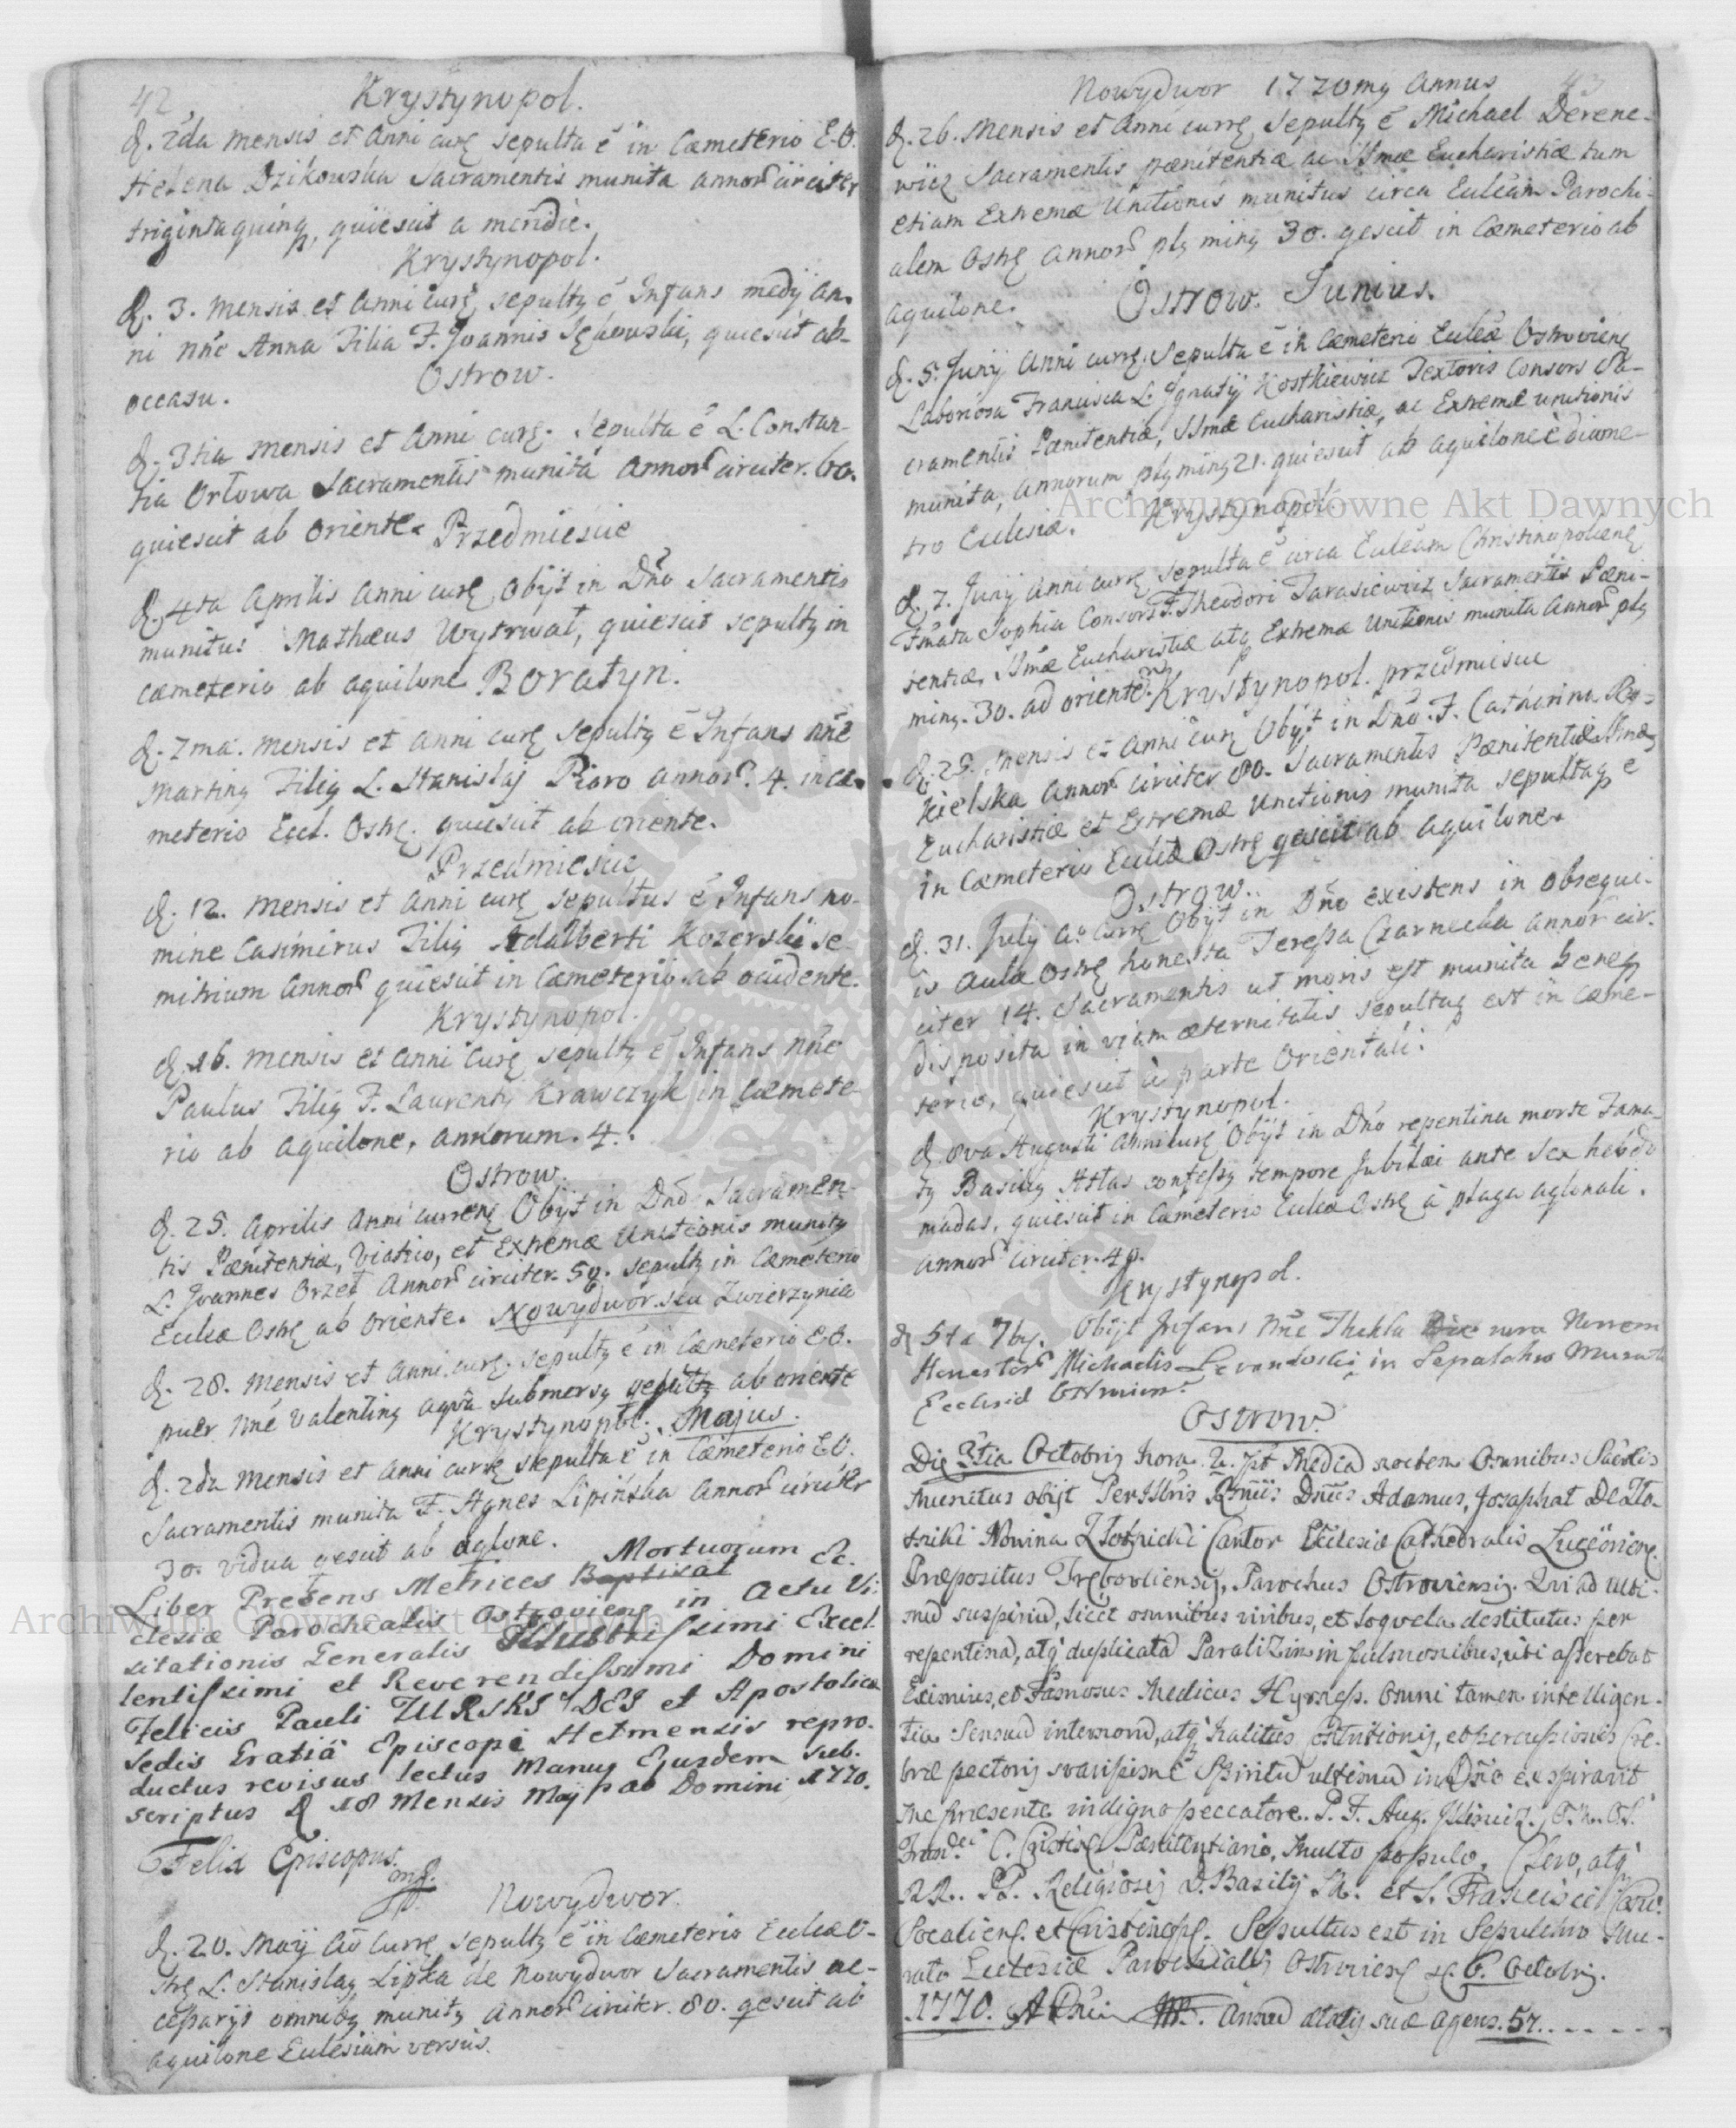 42.
Krystynopol.
d. 2da mensis et anni curę sepulta ē in Cæmeterio E.O.
Helena Dzikowska Sacramentis munita annor̄ circiter
trigintaquinq, quiescit a meridie.
Krystynopol.
d. 3. mensis et anni curę, sepultq ē Infans medij an-
ni nn̄e Anna Filia F. Joannis, quiescit ab-
occasu.
Ostrow.
d. 3tia mensis et Anni curę. Sepulta ē L. Constan-
tia Orłowa Sacramentis munita annor̄ circiter. 60.
quiescit ab oriente. Przedmiescie
d. 4ta Aprilis anni curę, obijt in Dn̄o Sacramentis
munitus Mathæus Wytrwał, quiescit sepultq in
cæmeterio ab aquilone Boratyn.
d. 7ma. mensis et anni curę sepultq ē Infans nn̄e
Martinq Filiq L. Stanislaj Pioro annor̄. 4. in cæ-
meterio Eccl. Ostrę. quiescit ab oriente.
Przedmiescie
d. 12. mensis et anni curę sepultus ē Infans no-
mine Casimirus Filiq Adalberti Kozerski se-
mitrium annor̄ quiescit in Cæmeterio ab occidente.
Krystynopol.
d. 16. mensis et anni curę sepultq ē Infans nn̄e
Paulus Filiq F. Laurentij Krawczyk in Cæmete-
rio ab aquilone, annorum. 4.
Ostrow.
d. 25. Aprilis anni currenę Obijt in Dn̄o Sacramen-
tis Pænitentiæ, Viatico, et Extremæ Unctionis munitq
L. Joannes Orzeł Annor̄ circiter. 50. sepultq in Cæmeterio
Ecclæ Ostrę ab oriente. Nowydwor seu Zwierzyniec
d. 28. mensis et anni curę. sepultq ē in Cæmeterio E.O.
puer nn̄e Valentinq aqvâ submersq ab oriente
Krystynopol. Majus.
d. 2da mensis et anni currę sepulta ē in Cæmeterio E.O.
Sacramentis munita F. Agnes Lipińska annor̄ circiter
30. vidua qescit ab aqlone.
Mortuorum
Liber Presens Metrices Baptisat Ec-
clesiæ Parochialis Ostroviens in actu Vi-
sitationis Generalis Illustrissimi Excel-
lentissimi et Reverendissimi Domini
Felicis Pauli TURSKI DEI et Apostolicæ
Sedis Gratiâ Episcopi Helmensis repro-
ductus revisus lectus Manuq Ejusdem sub-
scriptus d 18 Mensis Maij ao Domini 1770.
Felix Episcopus.
mp.
Nowydwor.
d. 20. Maij ao currę sepultq ē in Cæmeterio Ecclæ O-
strę L. Stanislaq Lipka de Nowydwor Sacramentis ne-
cessarijs omnibq munitq annor̄ circiter. 80. qescit ab
aquilone Eclesiam versus.
43
Nowydwor 1770mq Annus
d. 26. Mensis et Anni currę, Sepultq ē Michael Derene-
wicz Sacramentis pænitentiæ ac SSmæ Eucharistiæ tum
etiam Extremæ Unctionis munitus circa Ecclēam Parochi-
alem Ostrę annor̄ plq minq 30. qescit in Cæmeterio ab
aquilone.
Ostrow. Junius.
d. 5. Junij Anni currę, Sepulta ē in Cæmeterio Ecclēæ Ostrovienę
Laboriosa Francisca L. Ignatij Kostkiewicz Textoris Consors Sa-
cramentis Pænitentiæ, SSmæ Eucharistiæ, ac Extremæ unctionis
munita, annorum plq minq 21. quiescit ab aquilone è diame-
tro Ecclesiæ. Krystynopol.
d. 7. Junij Anni currę sepulta ē circa Ecclēam Christinopolienę
Fmata Sophia Consors F. Theodori Tarasiewicz Sacramentis Pæni-
tentiæ, SSmæ Eucharistiæ atq Extremæ Unctionis munita annor̄ plq
minq. 30. ad orientem Krystynopol. przedmiescie
d. 29. mensis et anni curę Obijt in Dn̄o. F. Catharina Ro-
kielska annor̄ circiter 80. Sacramentis Pænitentiæ SSmæ
Eucharistiæ et Extremæ Unctionis munita sepultaq ē
in Cæmeterio Ecclēæ Ostrę qescit ab aquilone.
Ostrow.
d. 31. Julij ao currę Obijt in Dn̄o existens in obsequi-
is Aulæ Ostrę honesta Teressa Czarnecka annor̄ cir-
citer 14. Sacramentis ut moris est munita beneq
disposita in viam æternitatis sepultaq est in cæme-
terio, quiescit à parte Orientali.
Krystynopol.
d 8va Augusti anni curę Obijt in Dn̄o repentina morte Fama-
tq Basiliq Atlas confessq tempore Jubilæi ante sex hebdo
madas, quiescit in Cæmeterio Ecclæ Ostrę à plaga aqlonali.
annor̄ circiter. 40.
Krystynopol.
d 5ta 7bq. Obijt Infans nn̄e Thekla
Honestor̄ Michaelis Lewandoski in Sepulchro Murato
Ecclesiæ Ostrovien.
Ostrow.
Die 3tia Octobris hora 2. pst Mediā noctem Omnibus Sacrtis
Munitus obijt PerIllris Rn̄dus Dn̄us Adamus, Josaphat De Zło-
tniki Nowina Złotnicki Cantor Ecclesiæ Cathedralis Luceorienę
Præpositus Trębovliensiq, Parochus Ostroviensis. Qui ad ulti-
mū suspiriū, licet omnibus viribus, et loqvela destitutus per
repentinā, atq duplicatā Paralizin in pulmonibus, uti asserebat
Eximius, et Famosus Medicus Hyrness. Omni tamen intelligen-
tia Sensuū internorū, atq halitûs, et percussionis Cre-
bræ pectoris svavissimē Spiritū ultimū in Dn̄o exspiravit
Me præsente indigno peccatore. P. F. Aug.
Pænitentiario, Multo populo, Clero, atq
RR. PP. Religiosis D. Basilij M. et S. Francisci
Socaliens. et Cristinop. Sepultus est in Sepulchro Mu-
rato Ecclesiæ Parochialis Ostrovienę d. 6. Octobris.
1770. A Dn̄i Annū ætatis suæ agens. 57.
Archiwum Główne Akt Dawnych
Archiwum Główne Akt Dawnych